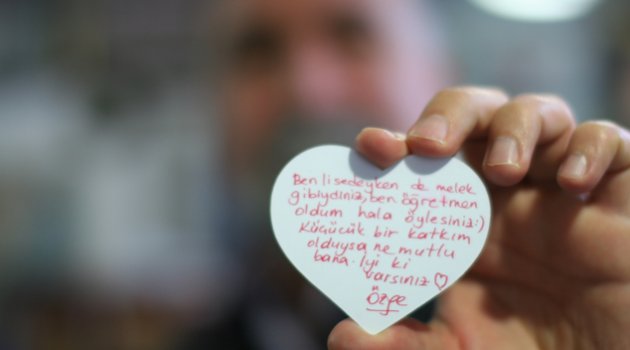 Ben lisedeyken de melek
gibiydiniz, ben öğretmen
oldum hala öylesiniz :)
Küçücük bir katkım
olduysa ne mutlu
bana. İyi ki
varsınız ♡
Özge